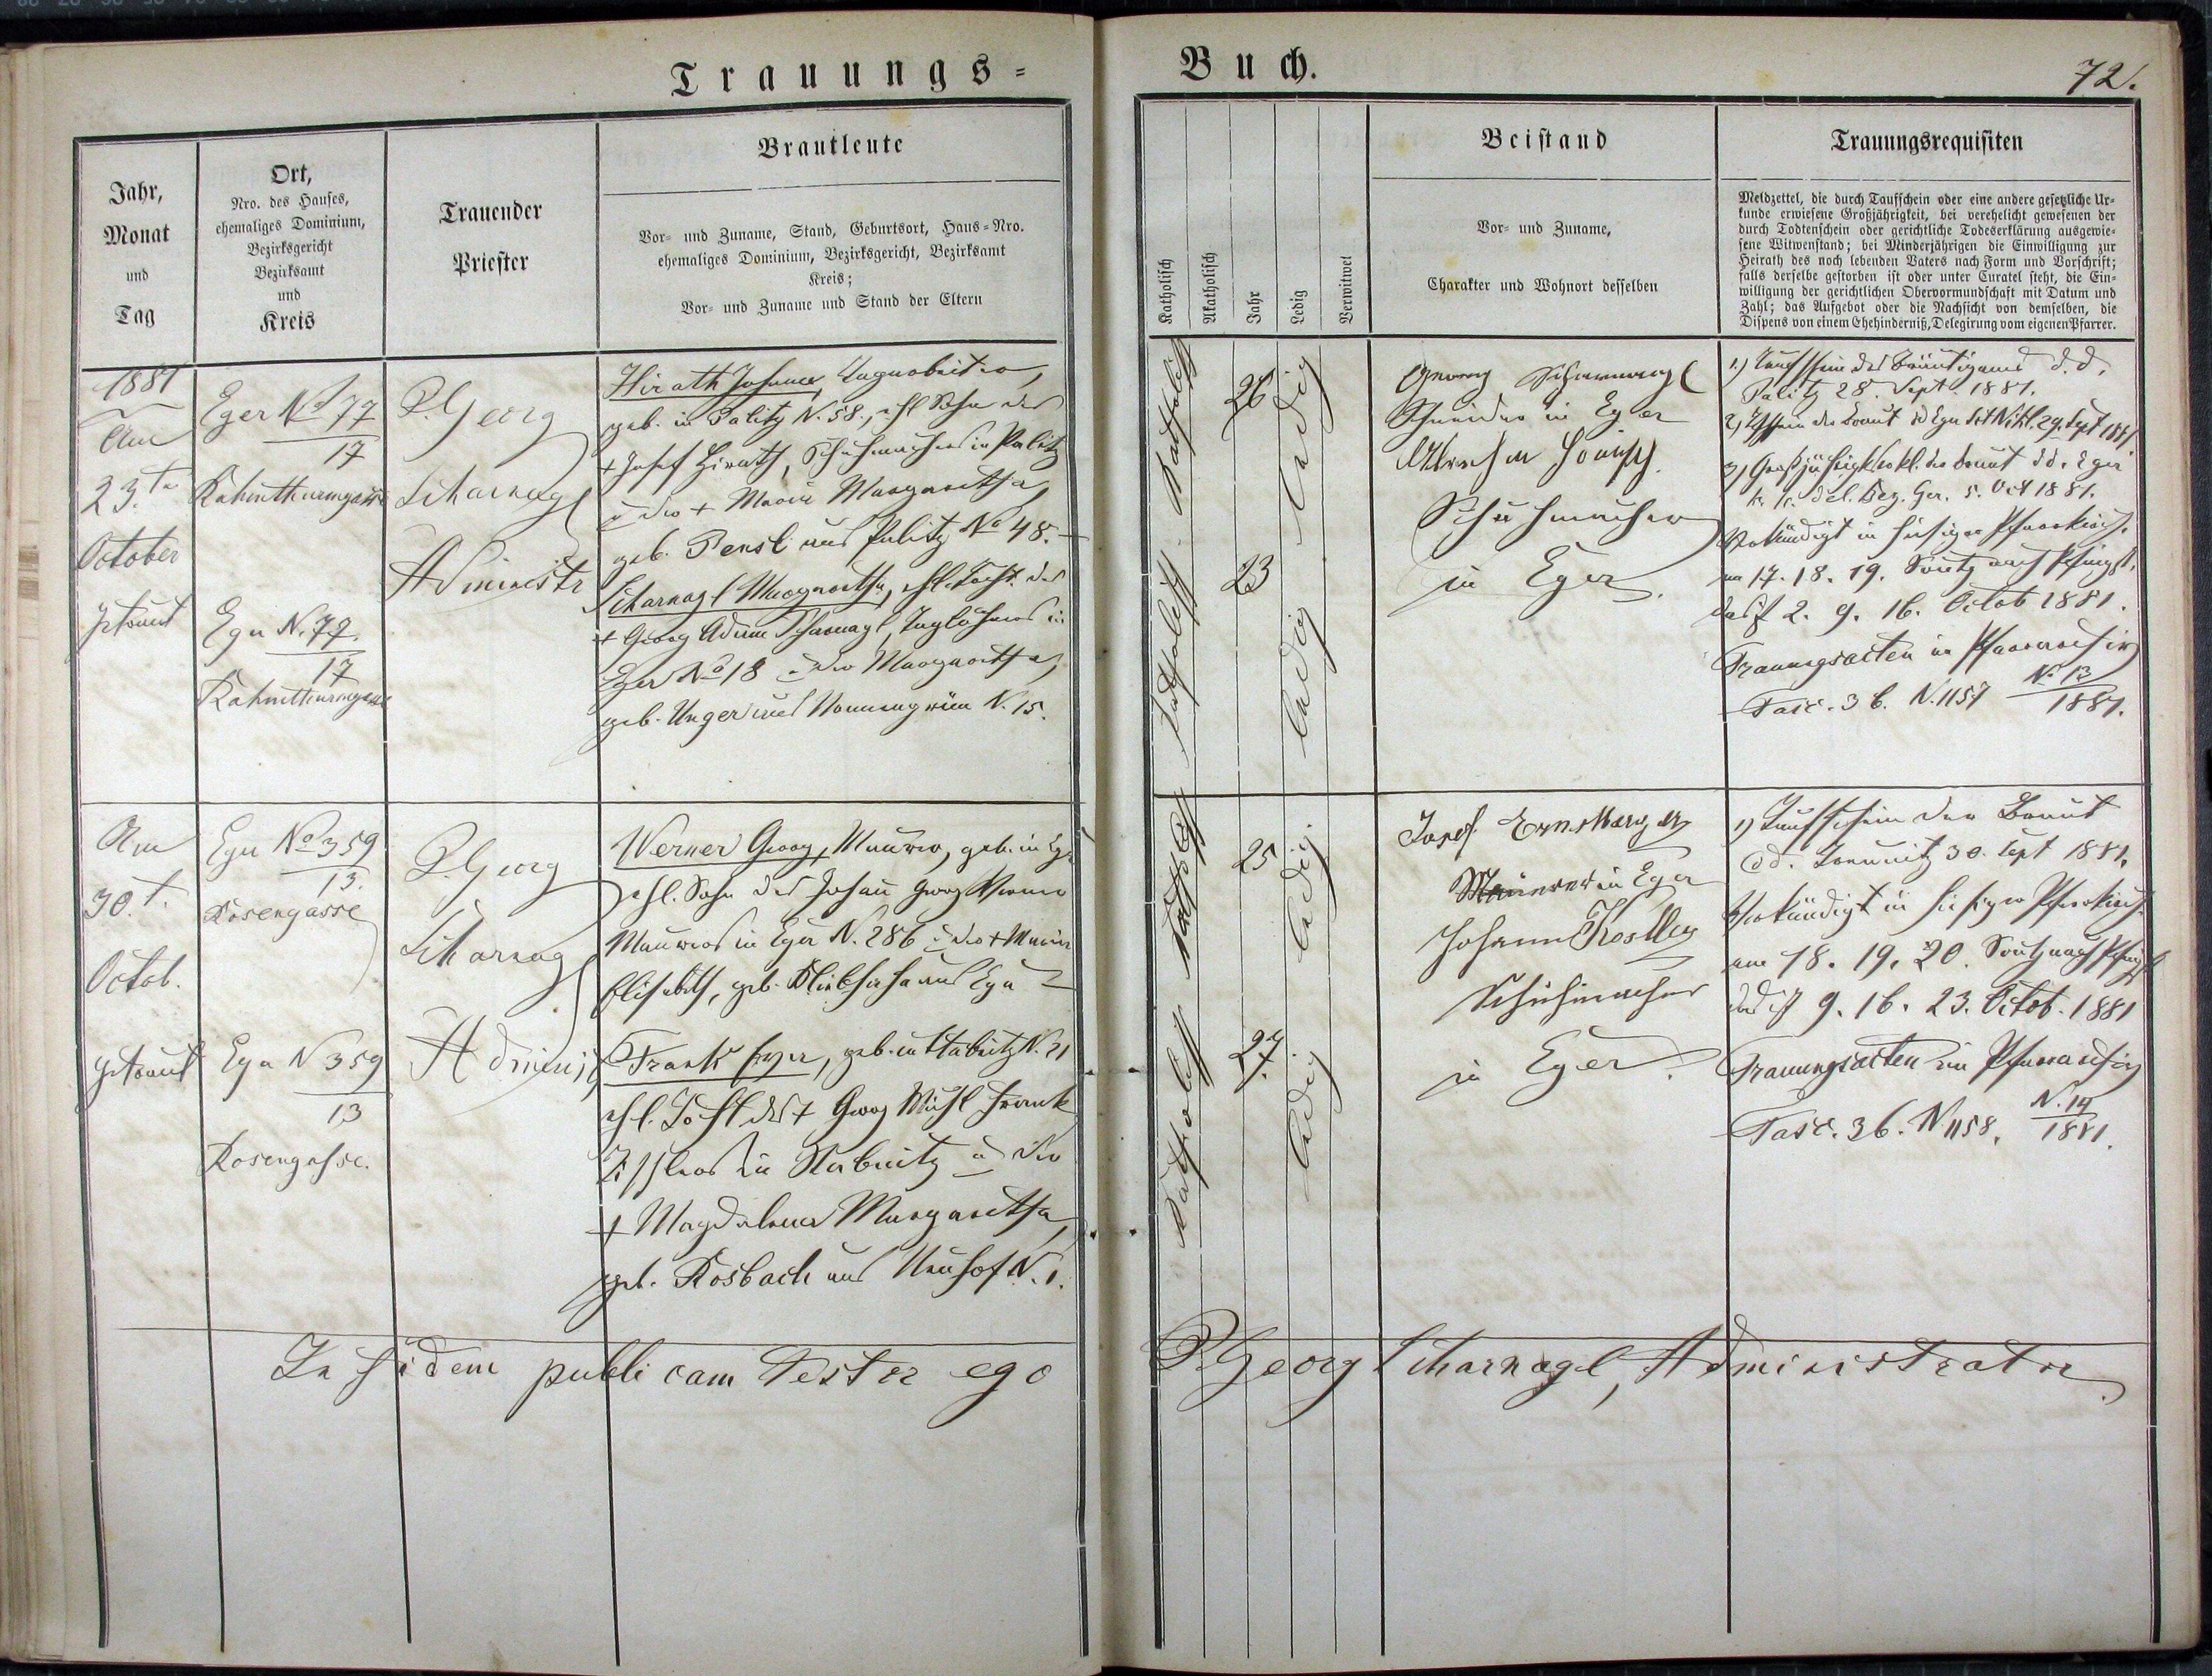 Trauungs-
Buch.
72.
Jahr,
Monat
und
Tag
Ort,
Nro. des Hauses,
ehemaliges Dominium,
Bezirksgericht
Bezirksamt
und
Kreis
Trauender
Priester
Brautleute
Vor- und Zuname, Stand, Geburtsort, Haus-Nro.
ehemaliges Dominium, Bezirksgericht, Bezirksamt
Kreis;
Vor- und Zuname und Stand der Eltern
Katholisch
Akatholisch
Jahr
Ledig
Verwitwet
Beistand
Vor- und Zuname,
Charakter und Wohnort desselben
Trauungsrequisiten
Meldzettel, die durch Taufschein oder eine andere gesetzliche Ur-
kunde erwiesene Großjährigkeit, bei verehelicht gewesenen der
durch Todtenschein oder gerichtliche Todeserklärung ausgewie-
sene Witwenstand; bei Minderjährigen die Einwilligung zur
Heirath des noch lebenden Vaters nach Form und Vorschrift;
falls derselbe gestorben ist oder unter Curatel steht, die Ein-
willigung der gerichtlichen Obervormundschaft mit Datum und
Zahl; das Aufgebot oder die Nachsicht von demselben, die
Dispens von einem Ehehinderniß, Delegirung vom eigenen Pfarrer.
1881
Am
23.
October
getraut
Eger No 77
17
Rahmthurmgasse
Eger N. 77.
17
Rahmthurmgasse
P. Georg
Scharnagl
Administr
Hirath Johann,
geb. in Palitz N. 58., ehl Sohn des
+ Josef Hirath, Schuhmachers in Palitz
u der + Maria Margaretha
geb. Pensl aus Palitz No 48. –
Scharnagl Margaretha, ehl. Tocht. des
+ Georg Adam Scharnagl, Taglöhners in
Eger No 18 u der Margaretha,
geb. Unger aus Nonnengrün N. 15.
Katholisch
Katholisch
26
23
ledig
ledig
Georg Scharnagl
Schneider in Eger
Schuhmacher
in Eger.
1.) Taufschein des Bräutigams d. d.
Palitz 28. Sept. 1881.
2.) der Braut dd Eger 29. Sept 1881
3.) Großjährigk der Braut dd. Eger
k. k. del. Bez. Ger. 5. Oct 1881.
Verkündigt in hiesiger Pfarrkirch.
am 17. 18. 19. Sontg nach Pfingst.
das ist 2. 9. 16. Octob 1881.
Trauungsacten in Pfarrarchiv
Fasc. 36. N. 1157 No 13
1881.
Am
30. t.
Octob.
getraut
Eger No 359
13.
Rosengasse
Eger N 359
13
Rosengasse.
P. Georg
Scharnagl
Adminis
Werner Georg, Maurer, geb. in Eger
ehl. Sohn des Johann Georg Werner
Maurers in Eger N. 286 u der + Maria
Elisabeth, geb. aus Eger –
Frank Eger, geb. in Stabnitz N. 21
ehl. Tocht des + Georg Frank
in Stabnitz u der
+ Magdalena Margaretha,
geb. Rosbach aus Neuhof N. 1.
Katholisch
Katholisch
25
27.
ledig.
ledig
Josef Ernstberger
Maurer in Eger
Johann Kostler
Schuhmacher
in Eger.
1) Taufschein der Braut
dd. 30. Sept 1881.
Verkündigt in hiesiger Pfarrkirch.
am 18. 19. 20. Sontg nach Pfingst
das ist 9. 16. 23. Octob. 1881
Trauungsacten im Pfarrarchiv
Fasc. 36. N 1158. N. 14
1881.
In fidem publicam Testor ego
P. Georg Scharnagl, Administrator.